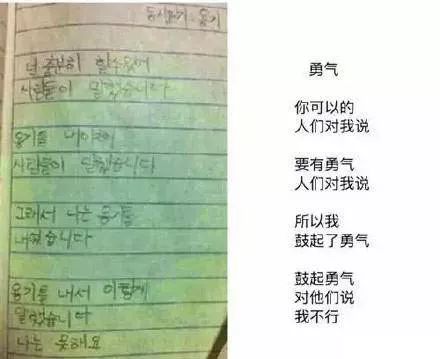 동시짓기 - 용기
넌 충분히 할수있어
사람들이 말했습니다
용기를 내야해
사람들이 말했습니다
그래서 나는 용기를
내었습니다
용기를 내서 이렇게
말했습니다
나는 못해요
勇气
你可以的
人们对我说
要有勇气
人们对我说
所以我
鼓起了勇气
鼓起勇气
对他们说
我不行